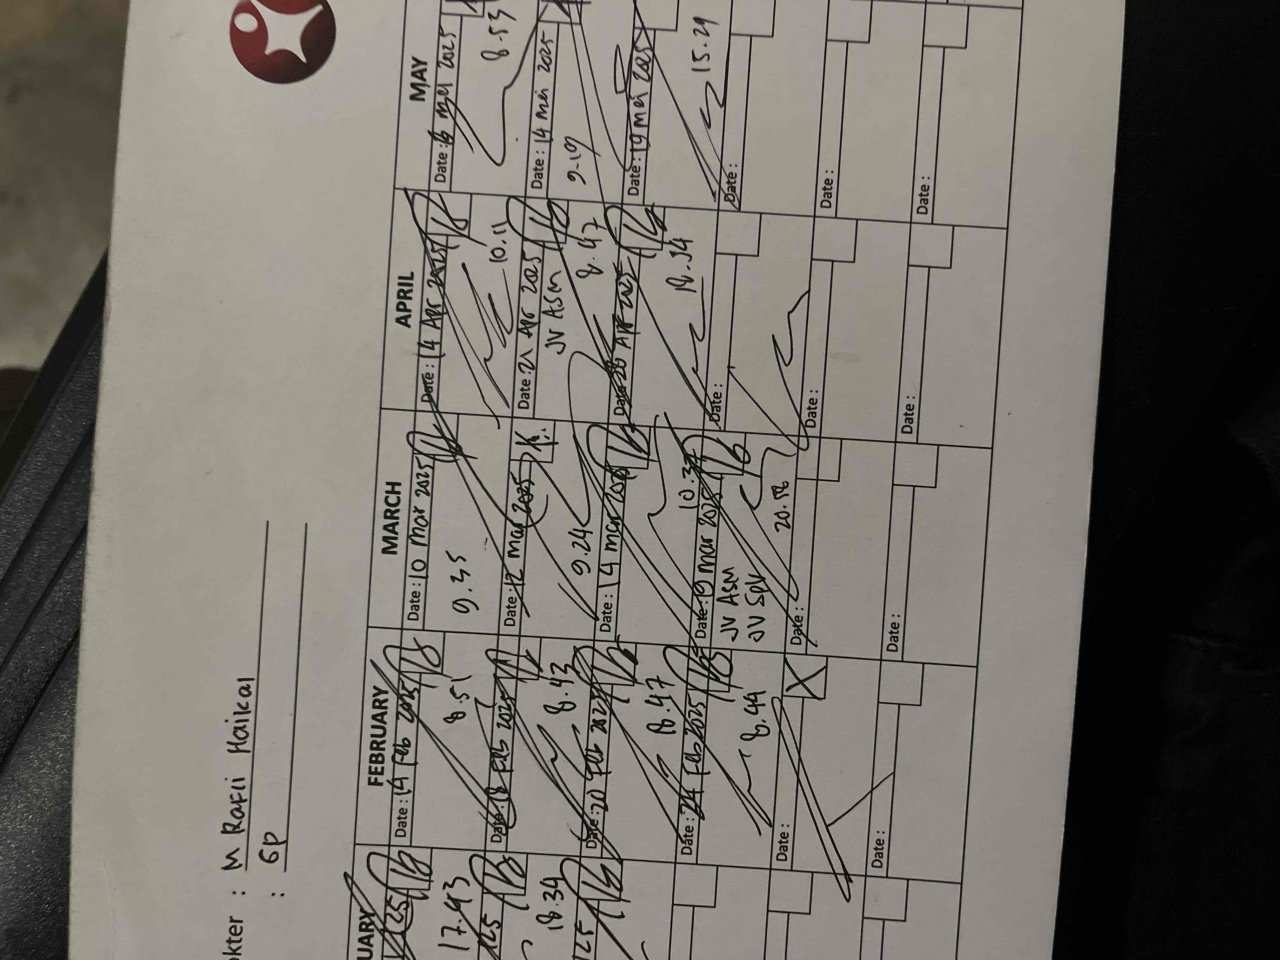 okter : M Rafii Haikal
: GP
UARY
25
17.43
025
18.34
025
FEBRUARY
Date : 14 Feb 2025
8.51
Date : 18 Feb 2025
8.43
Date : 20 Feb 2025
18.47
Date : 24 Feb 2025
8.44
Date :
MARCH
Date : 10 Mar 2025
9.35
Date : 12 Mar 2025
9.24
Date : 14 Mar 2025
10.32
Date : 19 Mar 2025
JV ASM
JV Spv
Date :
Date :
APRIL
Date : 14 Apr 2025
10.11
Date : 21 Apr 2025
JV ASM
8.47
Date : 28 Apr 2025
18.34
Date :
Date :
Date :
MAY
Date : Mei 2025
8.53
Date : 14 Mei 2025
9.19
Date : 19 Mei 2025
15.29
Date :
Date :
Date :